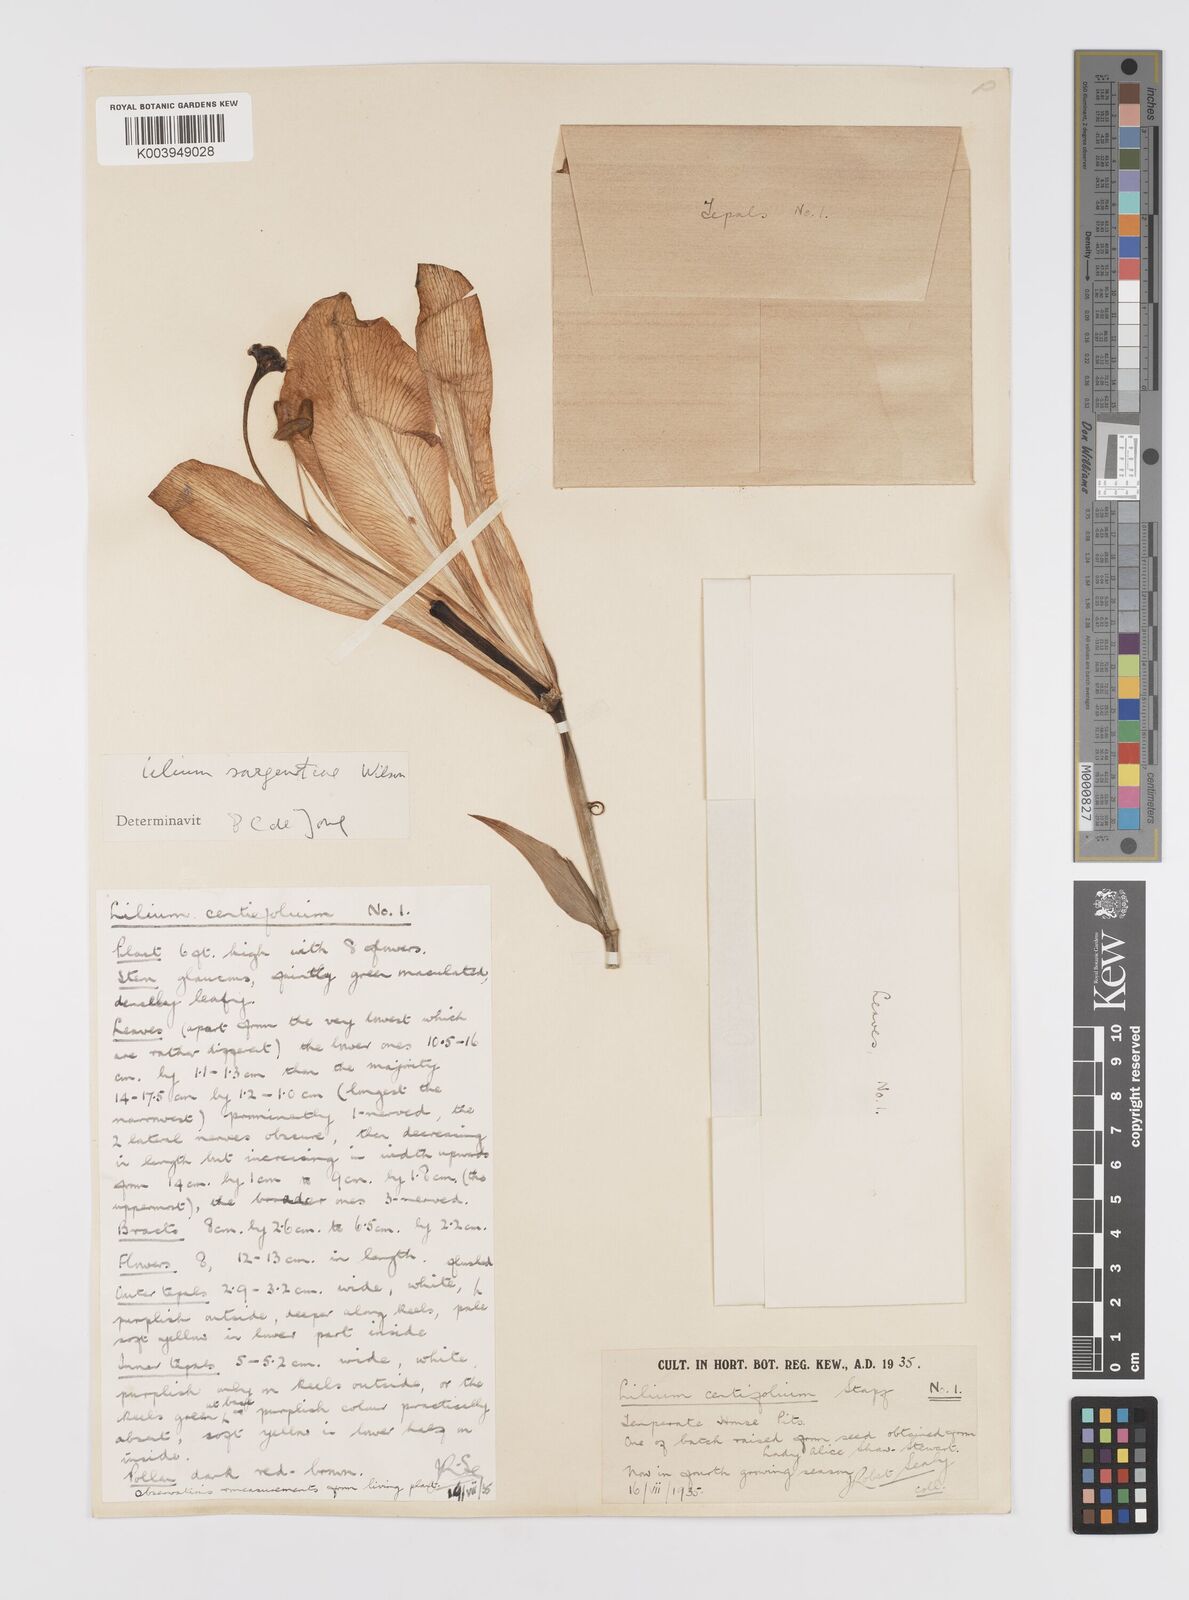 ROYAL BOTANIC GARDENS KEW
K003949028
Tepals No. 1.
Lilium sargentiae Wilson
Determinavit P C de Jong
Lilium centifolium No. 1.
Plant 6 ft. high with 8 flowers.
Stem glaucous, faintly green maculated,
densely leafy.
Leaves (apart from the very lowest which
are rather different) the lower ones 10.5-16
cm. by 1.1-1.3 cm then the majority
14-17.5 cm by 1.2-1.0 cm (longest the
narrowest) prominently 1-nerved, the
2 lateral nerves obscure, then decreasing
in length but increasing in width upwards
from 14 cm. by 1 cm to 9 cm. by 1.8 cm. (the
uppermost), the broader ones 3-nerved.
Bracts 8 cm. by 2.6 cm. to 6.5 cm. by 2.2 cm.
Flowers 8, 12-13 cm. in length.
Outer tepals 2.9-3.2 cm. wide, white, flushed
purplish outside, deeper along keels, pale
soft yellow in lower part inside
Inner tepals 5-5.2 cm. wide, white,
purplish only on keels outside, or the
keels green at base purplish colour practically
absent, soft yellow in lower half on
inside.
Pollen dark red-brown.
Observations & measurements from living plant.
Leaves, No. 1.
CULT. IN HORT. BOT. REG. KEW., A.D. 1935.
Lilium centifolium Stapf No. 1.
Temperate House Pits.
One of batch raised from seed obtained from
Lady Alice Shaw-Stewart.
Now in fourth growing season Robert Sealy
16/vii/1935. coll.
inches
OSO Illuminant, 2 degree observer
Density
Don Williams
All values are averages
centimeters
M000827
Kew
Royal Botanic Gardens
0 1 2 3 4 5 6 7 8 9 10
cm
copyright reserved